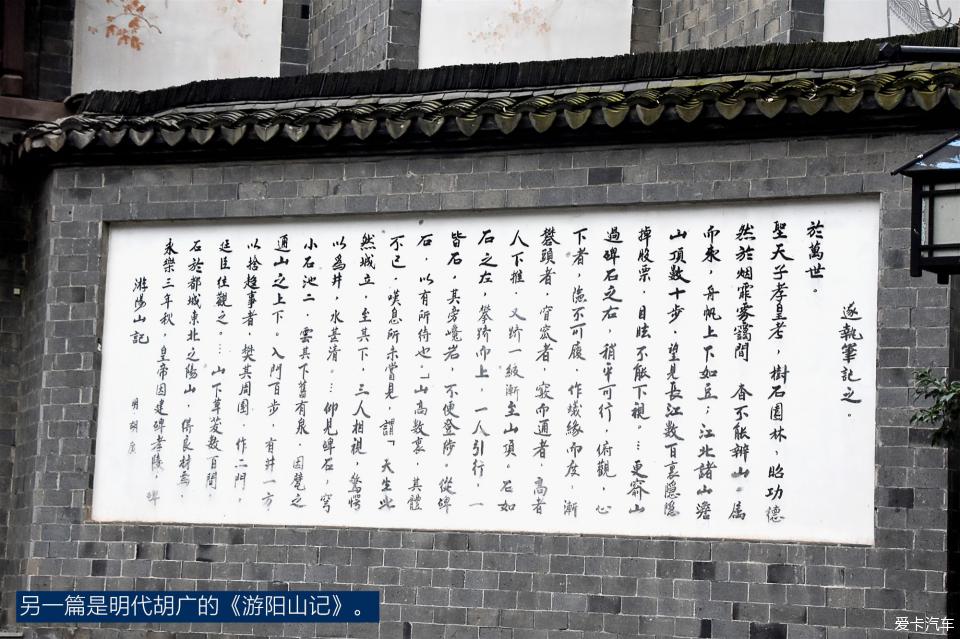 游陽山記 明 胡廣
永樂三年秋,皇帝因建碑孝陵,碑
石於都城東北之陽山,得良材焉,
廷臣往觀之。… 山下草茇数百間,
以捨趨事者,樊其周園,作二門,
通山之上下。入門百步,有井一方
小石池二 雲其下舊有泉 因甃之
以為井,水甚清。…仰見碑石,穹
然城立,至其下,三人相視,驚愕
不已,嘆息所未嘗見,謂「天生此
石,以有所待也」山高数裏,其體
皆石,其旁巉岩,不便登陟。從碑
石之左,攀躋而上 一人引行,一
人下推,又躋一級漸至山頂。石如
礬頭者,窅窊者,竅而通者,高者
下者 險不可履,作蟻緣而度,漸
過碑石之右 稍平可行,俯觀,心
掉股票,目眩不能下視。…更窮山
山頂数十步,望見長江数百裏隱隱
而來,舟帆上下如豆;江北諸山澹
然於烟霏雾靄間 杳不能辨山。屬
聖天子孝皇考,樹石園林,昭功德
於萬世。
遂執筆記之。
另一篇是明代胡广的《游阳山记》。
爱卡汽车